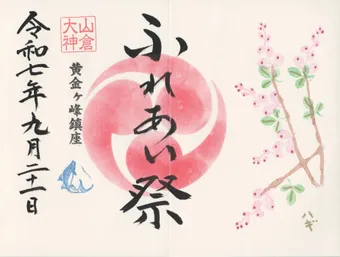 ハギ
ふれあい祭
山倉
大神
黄金ヶ峰鎮座
令和七年九月二十一日